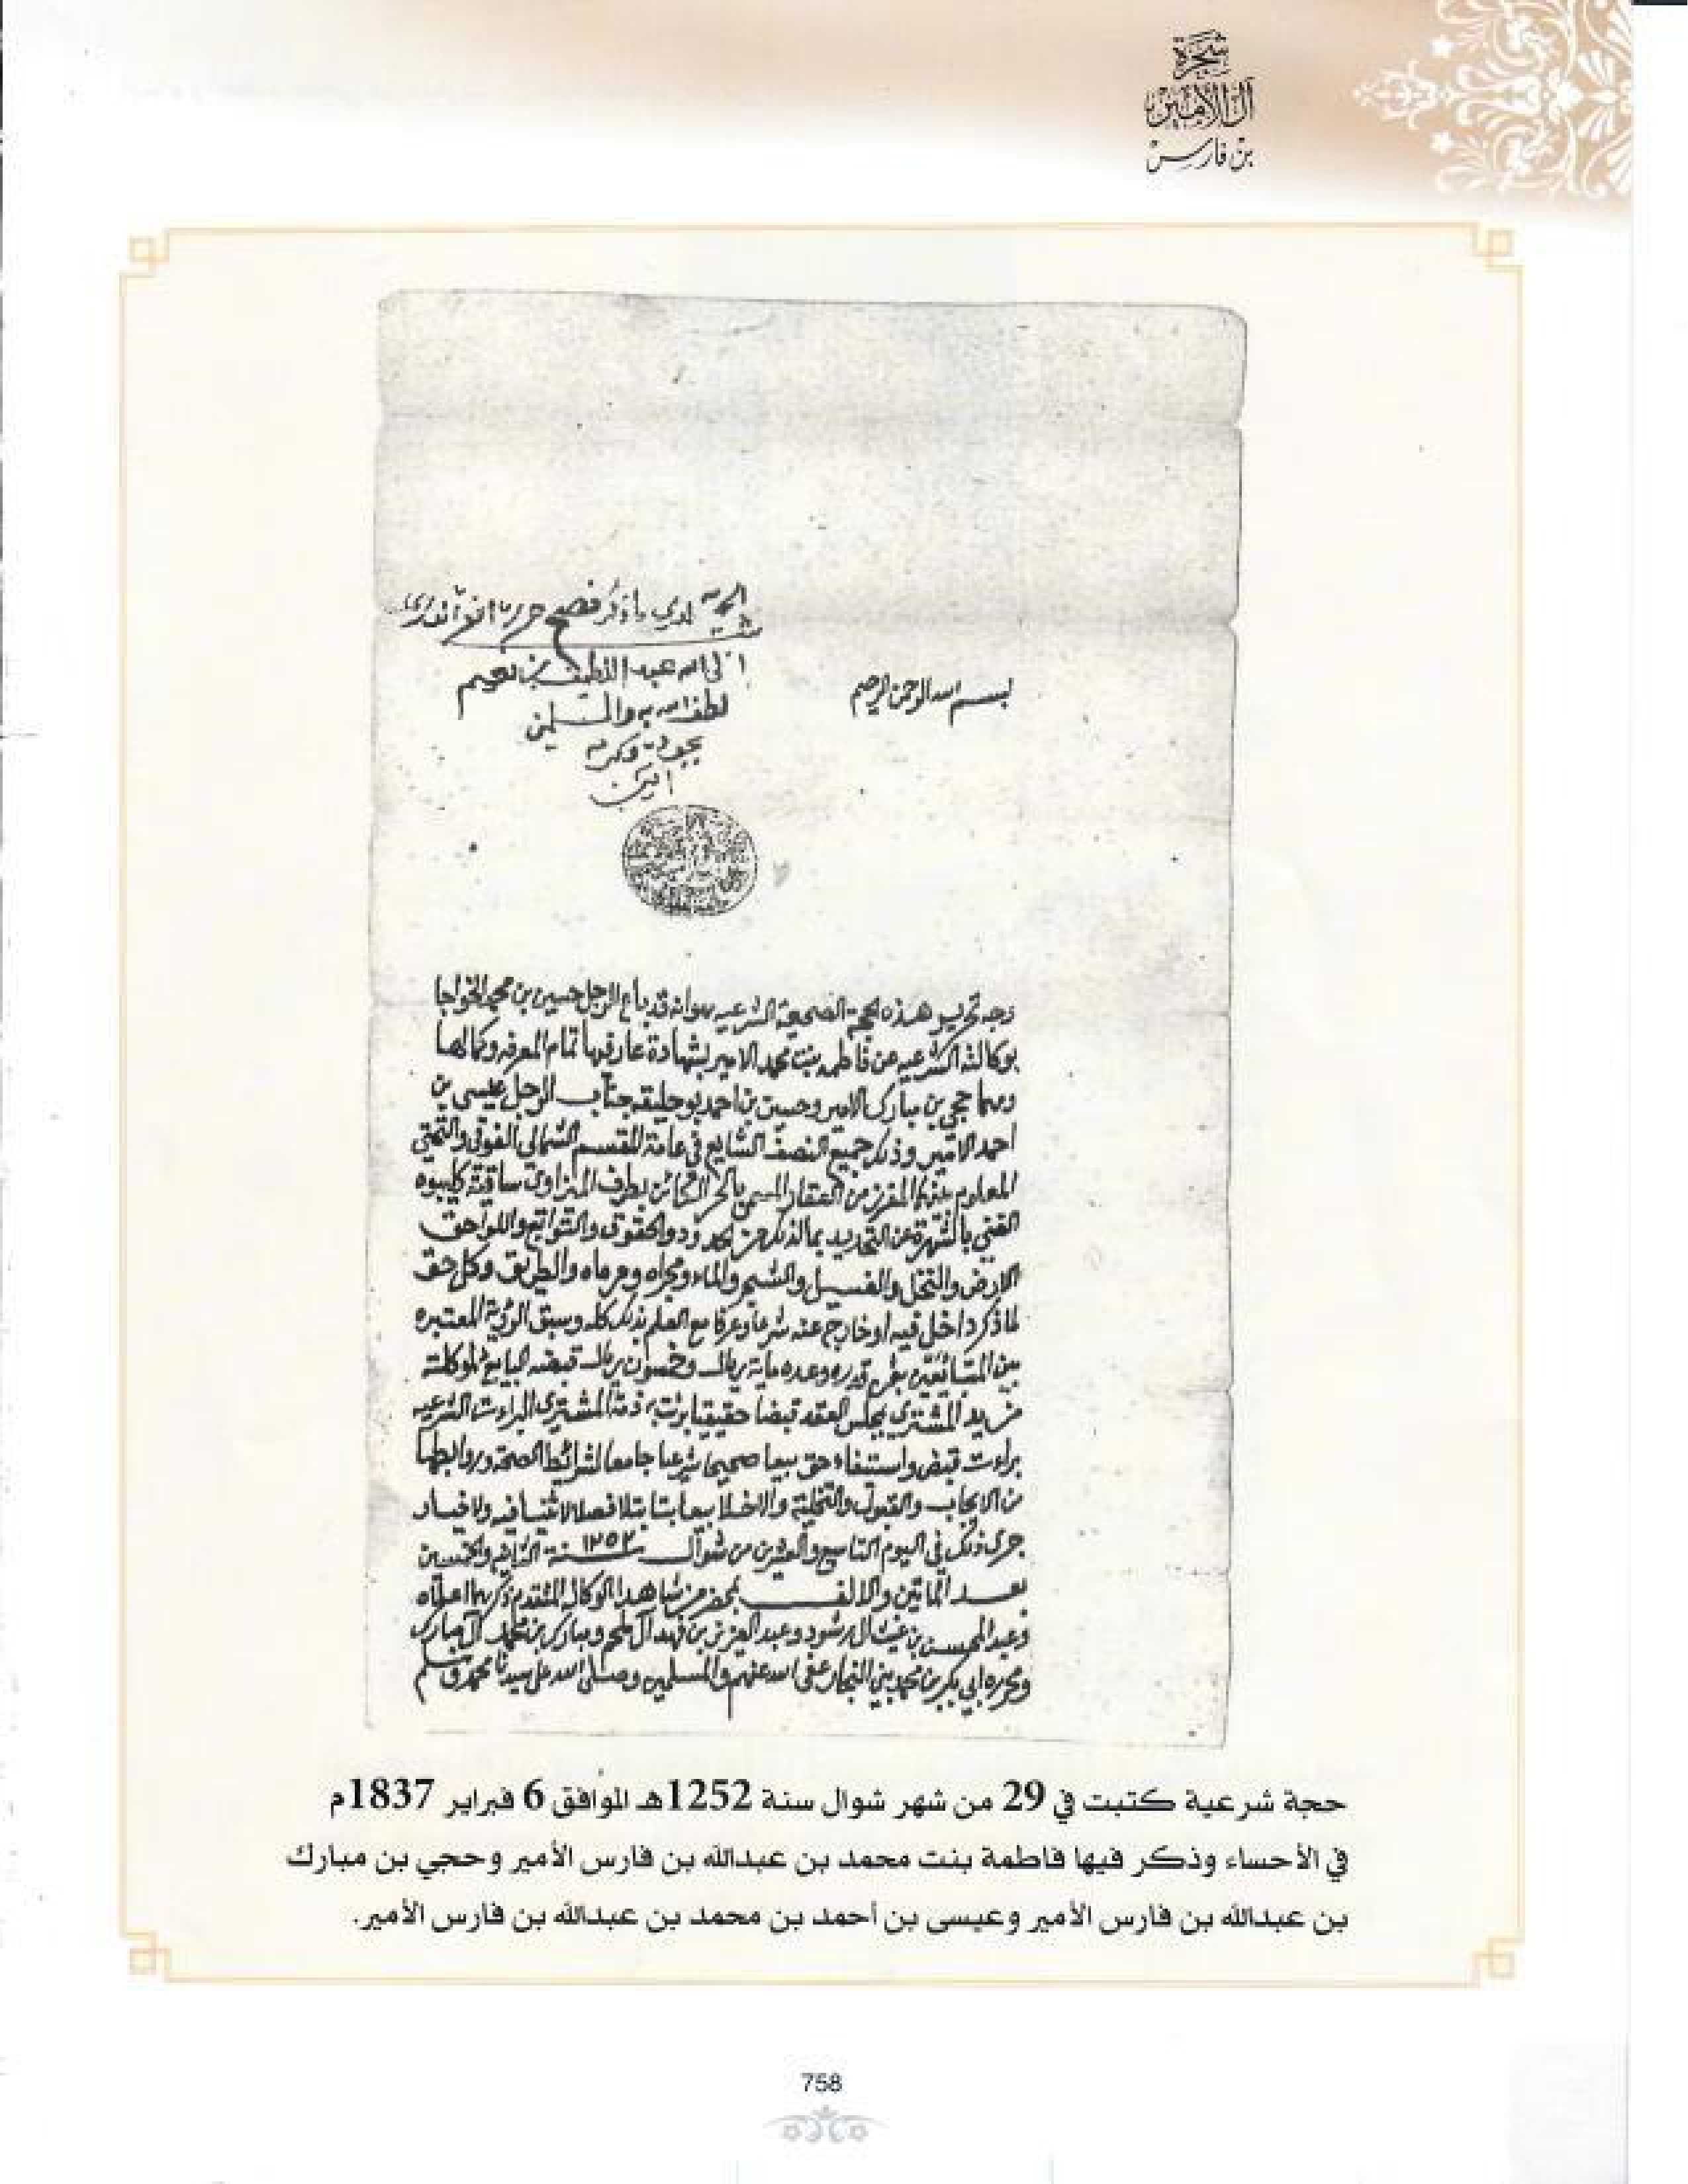 شجرة
آل الأمير
بن فارس
لدي ما ذكر فصح
عبد اللطيف بن
لطف الله به والمسلمين
بجوده وكرمه
امين
بسم الله الرحمن الرحيم
وجه تحرير هذه الحجة الصحيحة الشرعيه هو انه قد باع الرجل حسين بن محمد الخواجا
بوكالته الشرعيه عن فاطمه بنت محمد الامير بشهادة عارفيها تمام المعرفه وكمالها
وهما حجي بن مبارك الامير وحسين بن احمد بوحليقه جناب الرجل عيسى بن
احمد الامير وذلك جميع النصف الشايع في عامة القسم الشمالي الفوقي والتحتي
المعلوم المفرز من العقار المسمى الكائن بطرف ساقية
الغني بالشهرة عن التحديد بما لذلك من الحدود والحقوق والتوابع واللواحق
الارض والنخل والفسيل والشجر والماء ومجراه ومرماه والطريق وكل حق
لما ذكر داخل فيه او خارج عنه شرعا وعرفا مع العلم بذلك كله وسبق الرؤية المعتبره
بين المتبائعين بثمن قدره وعدده ماية ريال وخمسون ريال قبضه البايع لموكلته
من يد المشتري بمجلس العقد قبضا حقيقيا برئت به ذمة المشتري البراءت الشرعيه
براءت قبض واستيفاء حق بيعا صحيحا شرعيا جامعا لشرائط الصحة وروابطها
من الايجاب والقبول والتخلية والاخلا بيعا بتا بتلا فصلا لا ثنيا فيه ولا خيار
جرى ذلك في اليوم التاسع والعشرين من شوال سنة ١٢٥٢ الثانيه والخمسين
بعد المائتين والالف بمحضر من شاهدا الوكاله المتقدم ذكرهما اعلاه
وعبد المحسن بن غيث ال رشود وعبد العزيز بن فهد ال ملحم ومبارك بن محمد ال مبارك
وحرره ابي بكر بن محمد بني النجار عفى الله عنهم والمسلمين وصلى الله على سيدنا محمد وسلم
حجة شرعية كتبت في 29 من شهر شوال سنة 1252هـ الموافق 6 فبراير 1837م
في الأحساء وذكر فيها فاطمة بنت محمد بن عبدالله بن فارس الأمير وحجي بن مبارك
بن عبدالله بن فارس الأمير وعيسى بن أحمد بن محمد بن عبدالله بن فارس الأمير.
758